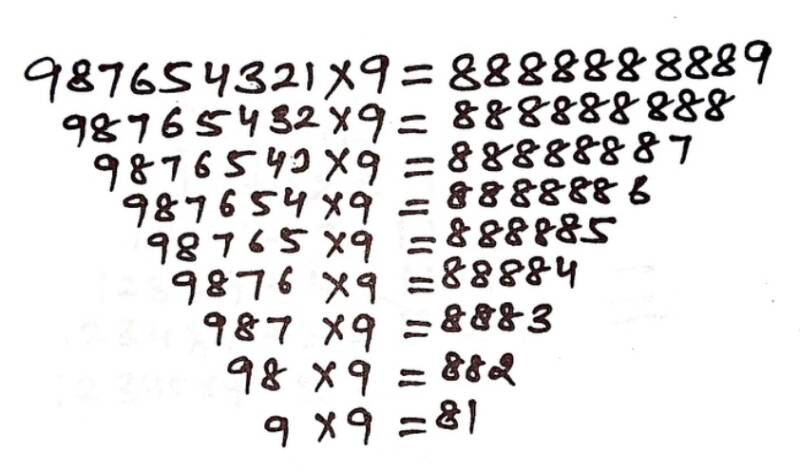 987654321×9 = 8888888889
98765432×9 = 888888888
9876543×9 = 88888887
987654×9 = 8888886
98765×9 = 888885
9876×9 = 88884
987×9 = 8883
98×9 = 882
9×9 = 81